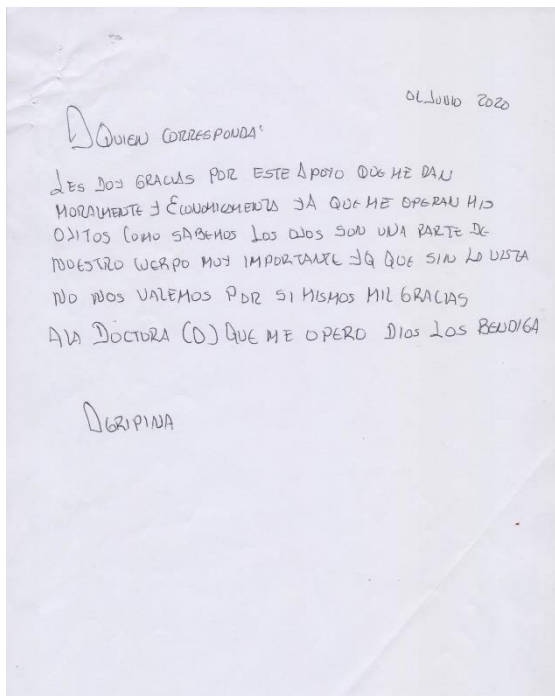 01 JUNIO 2020
A QUIEN CORRESPONDA:
LES DOY GRACIAS POR ESTE APOYO QUE ME DAN
MORALMENTE Y ECONOMICAMENTE YA QUE ME OPERAN MIS
OJITOS COMO SABEMOS LOS OJOS SON UNA PARTE DE
NUESTRO CUERPO MUY IMPORTANTE YA QUE SIN LA VISTA
NO NOS VALEMOS POR SI MISMOS MIL GRACIAS
A LA DOCTORA (O) QUE ME OPERO DIOS LOS BENDIGA
AGRIPINA